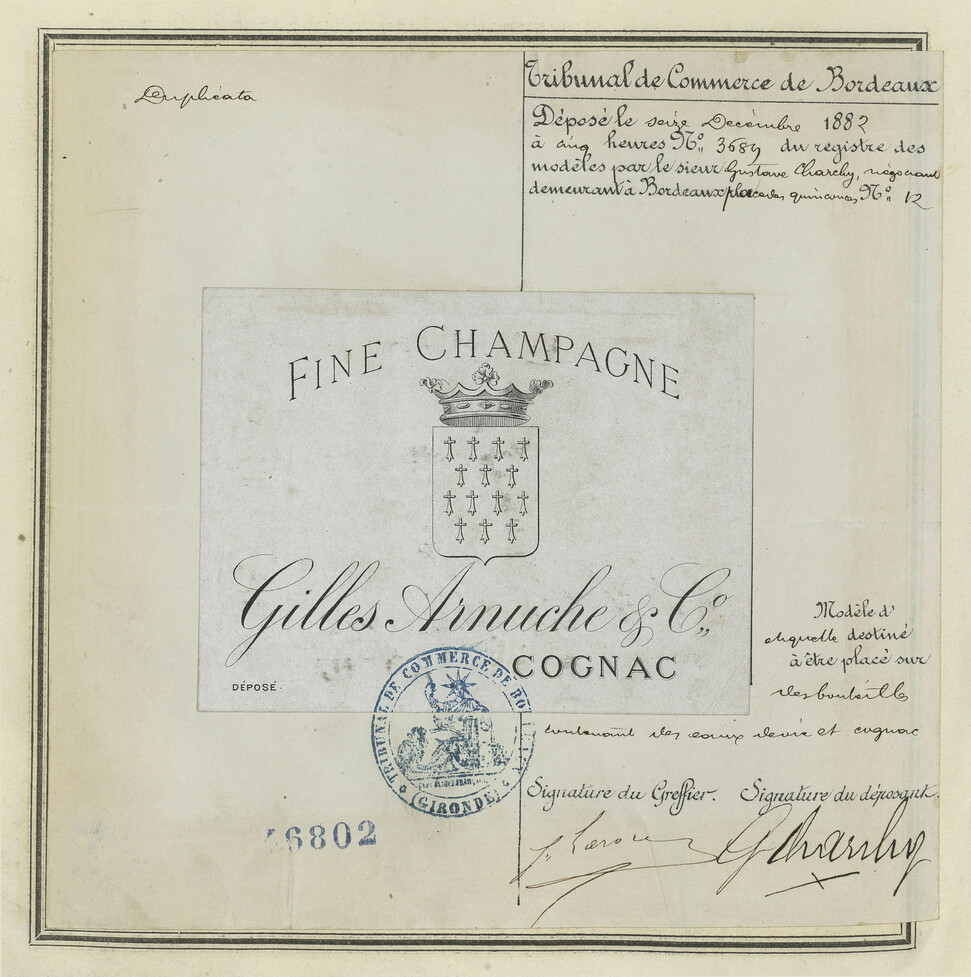 Duplicata
Tribunal de Commerce de Bordeaux
Déposé le seize Decembre 1882
à cinq heures No. 3689 du registre des
modèles par le sieur Gustave Charchy, négociant
demeurant à Bordeaux place des quinconces No. 12
FINE CHAMPAGNE
Gilles Arnuche & Co.
COGNAC
DÉPOSÉ
Modèle d'
etiquette destiné
à être placé sur
des bouteilles
contenant des eaux devie et cognac
TRIBUNAL DE COMMERCE DE BO
(GIRONDE)
Signature du Greffier. Signature du déposant.
GCharchy
6802